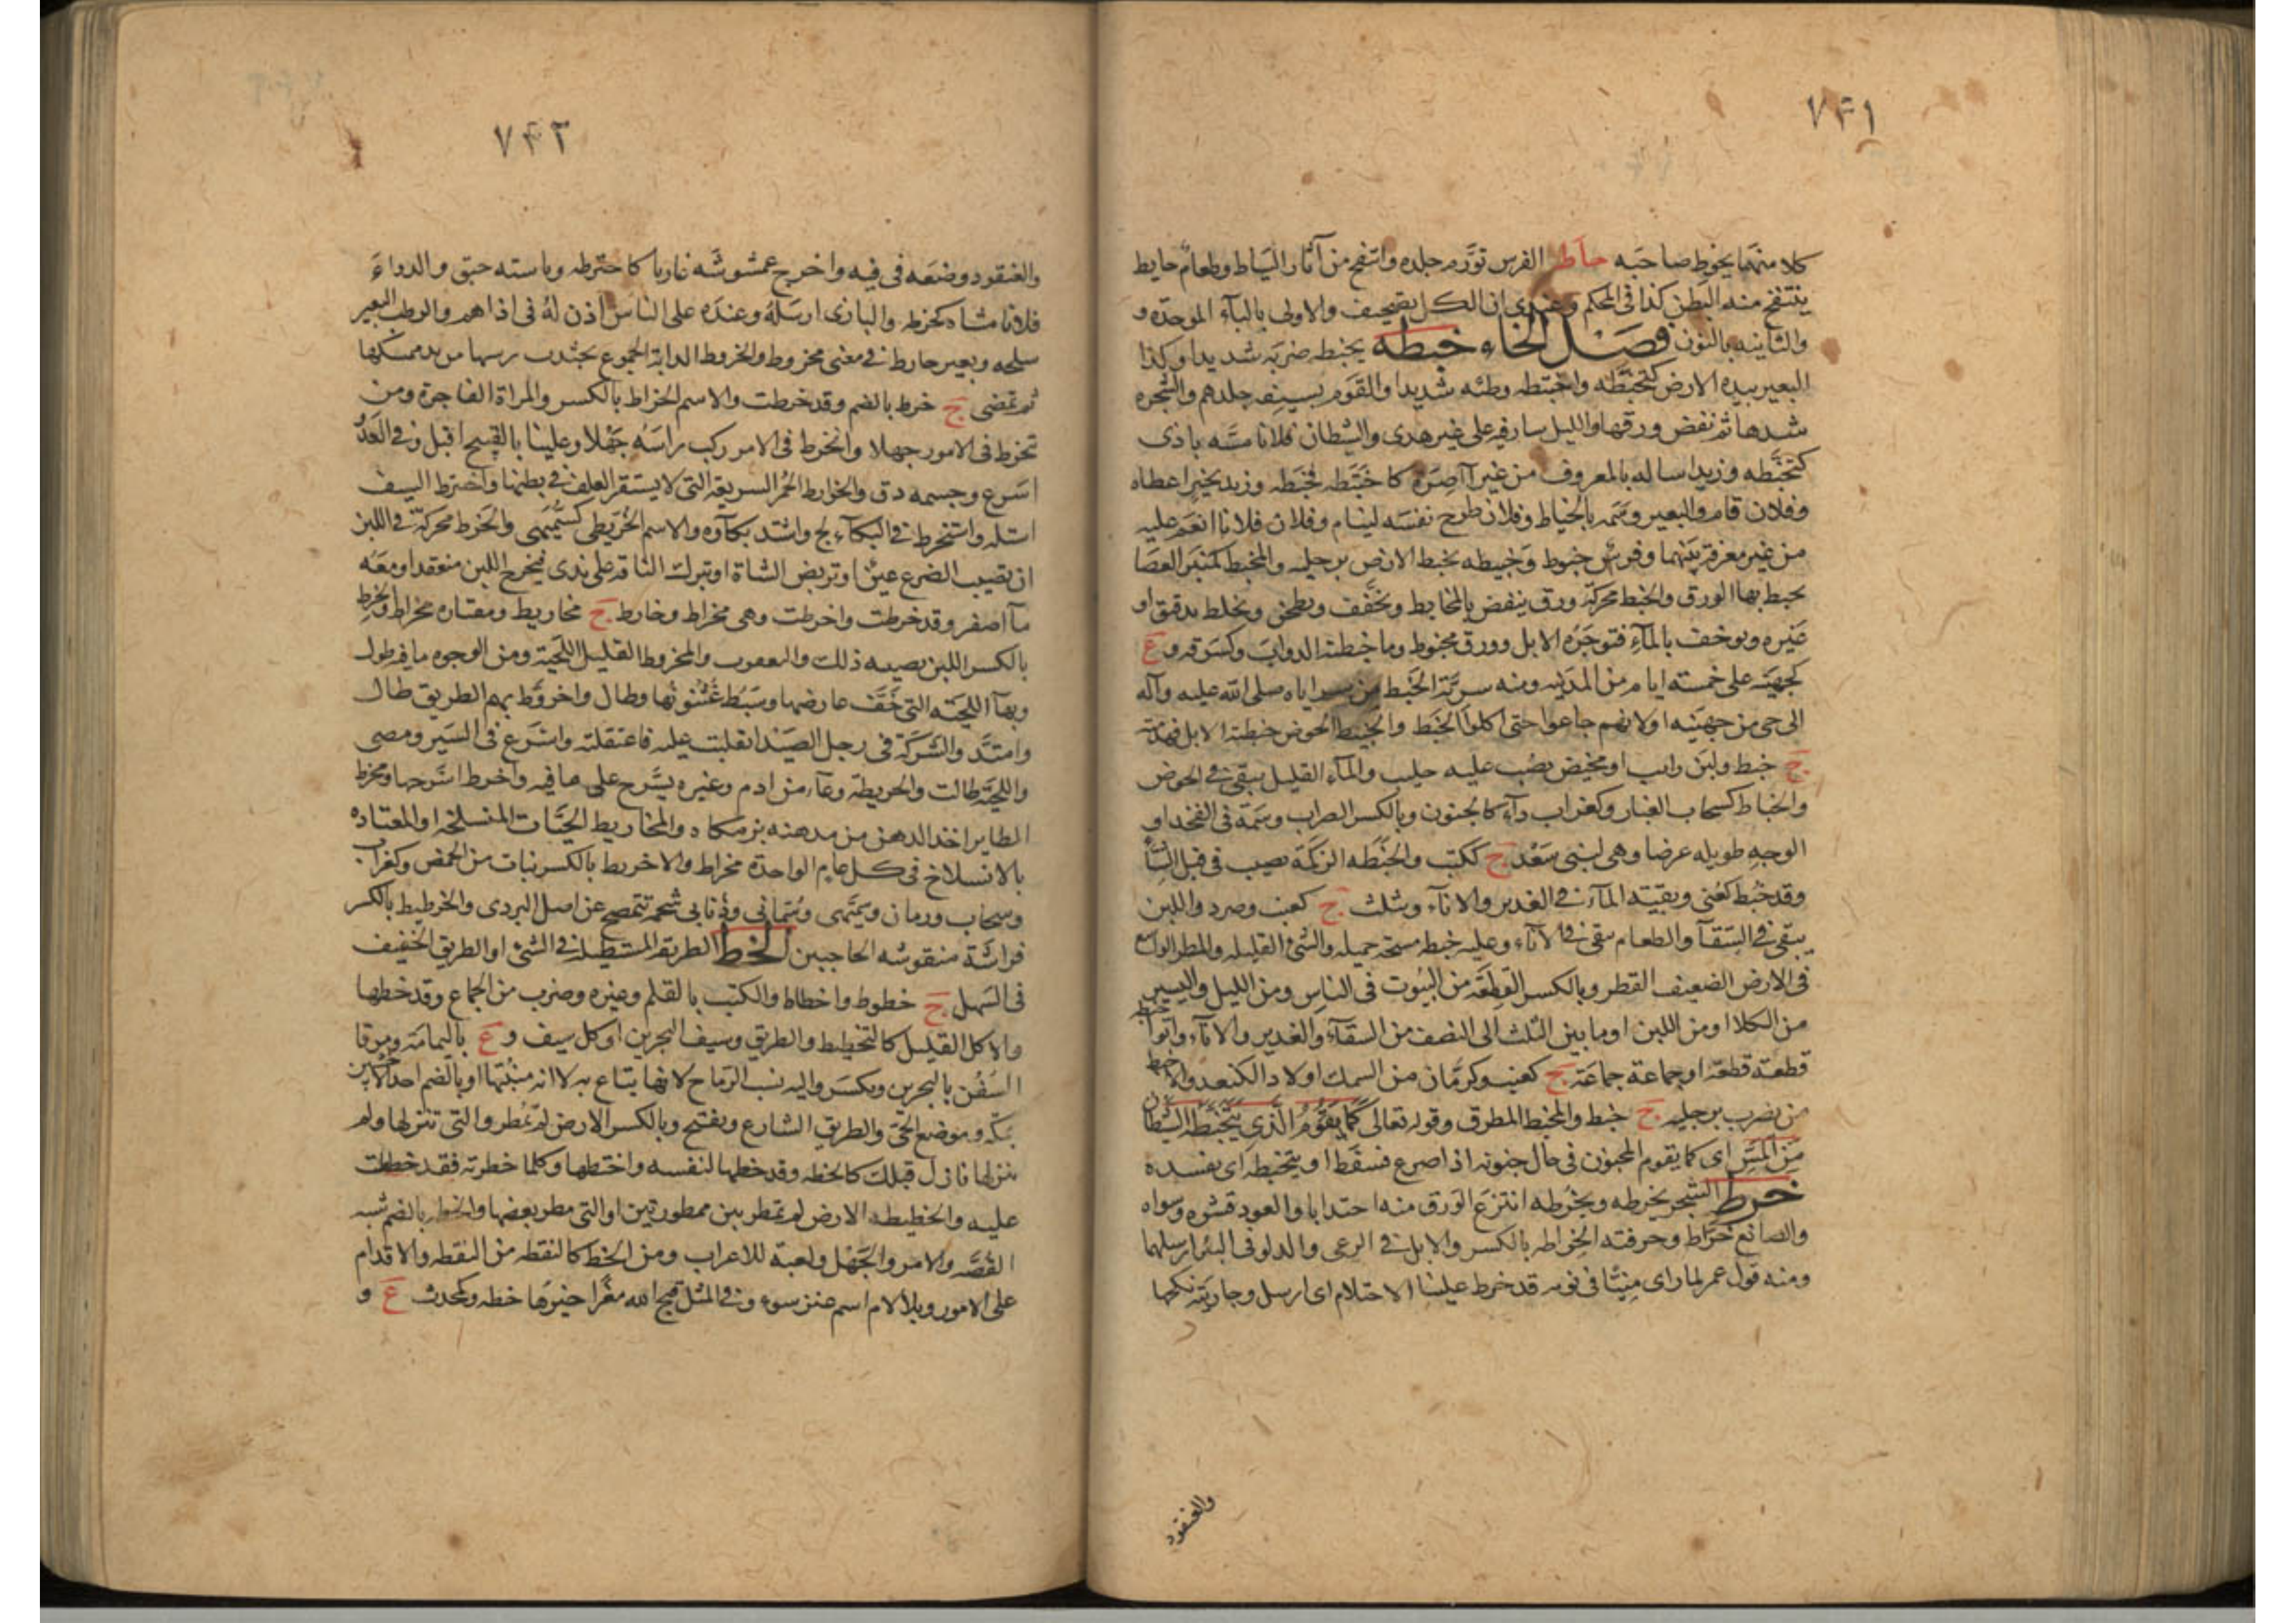 ٧٤١
كلا منهما يحوط صاحبه حاط الفرس تورّم جلده وانتفخ من آثار السياط وطعام حايط
ينتفخ منه البطن كذا فى المحكم وعندى ان الكل تصحيف والاولى بالبآء الموحدة و
والثانيه بالنون فصل الخاء خبطه يخبطه ضربه شديدا وكذا
البعير بيده الارض كتخبّطه واختبطه وطئه شديدا والقوم بسيفه جلدهم والشجره
شدها ثم نفض ورقها والليل سار فيه على غير هدى والشيطان فلانا مسّه باذى
كتخبّطه وزيدا ساله بالمعروف من غير آصرة كاختبطه فخبطه وزيد بخير اعطاه
وفلان قام والبعير وسَمه بالخباط وفلان طرح نفسه لينام وفلان فلانا انعم عليه
من غير معرفة بينهما وفرس خبوط وخبيطه يخبط الارض برجليه والمخبط كمنبر العصا
يخبط بها الورق والخبط محركة ورق ينفض بالمخابط ويخفّف ويطحن ويخلط بدقيق او
غيره ويوخف بالمآء فتوجره الابل وورق مخبوط وما خبطته الدواب وكسرته و ع
لجهينه على خمسة ايام من المدينه ومنه سريّة الخبط من سراياه صلى الله عليه وآله
الى حى من جهينه اولانهم جاعوا حتى اكلوا الخبط والخبيط الحوض خبطته الابل فهدمته
ج خبط ولبن رايب او مخيض يصب عليه حليب والمآء القليل يبقى فى الحوض
والخباط كسحاب الغبار وكغراب دآء كالجنون وبالكسر الضراب وسمة فى الفخذ او
الوجه طويله عرضا وهى لبنى سعد ج ككتب والخبطه الزكمة تصيب فى قبل الشتآ
وقد خُبط كعُنى وبقية المآء فى الغدير والاناء ويثلث ج كعنب وصرد واللبن
يبقى فى السقآ والطعام يبقى فى الاناء وعليه خبطه مسحة جميله والشئ القليله والمطر الواسع
فى الارض الضعيف القطر وبالكسر القطعة من البيوت فى الناس ومن الليل واليسير
من الكلا او من اللبن او ما بين الثلث الى النصف من السقآء والغدير والاناء واتوا خبطه
قطعة قطعة او جماعة جماعة ج كعنب وكرمّان من السمك اولاد الكنعد والاخبط
من يضرب برجليه ج خبط والمخبط المطرق وقوله تعالى كما يقوم الّذى يتخبّطه الشيطان
من المسّ اى كما يقوم المجنون فى حال جنونه اذا صرع فسقط او يتخبطه اى يفسده
خرط الشجر يخرطه ويخُرطه انتزع الورق منه اجتذابا والعود قشره وسواه
والصانع خرّاط وحرفته الخراطه بالكسر والابل فى الرعى والدلو فى البئر ارسلهما
ومنه قول عمر لما راى منيّا فى ثوبه قد خرط علينا الاحتلام اى ارسل وجاريته نكحها
والعنقود
٧٤٢
والعنقود وضعه فى فيه واخرج عمشوشه عاريا كاخترطه وباسته حبق والدواءَ
فلانا مشاه كخرطه والبازى ارسله وعبده على الناس اذن له فى اذاهم والرطب البعير
سلحه وبعير خارط فى معنى مخروط والخروط الدابة الجموح يجتذب رسنها من يد ممسكها
ثم تمضى ج خرط بالضم وقد خرطت والاسم الخراط بالكسر والمراة الفاجرة ومن
تخرط فى الامور جهلا وانخرط فى الامر ركب راسه جهلا وعلينا بالقبيح اقبل وفى العَدْو
اسرع وجسمه دق والخوارط الحُمر السريعة التى لا يستقر العلف فى بطنها واخترط السيف
استله واستخرط فى البكآء لج واشتد بكآؤه والاسم الخُرّيطى كسُمّيهى والخرط محركة فى اللبن
ان تصيب الضرع عين او تربض الشاة او تبرك الناقة على ندى فيخرج اللبن منعقدا ومعه
مآ اصفر وقد خرطت واخرطت وهى مخراط وخارط ج مخاريط ومعتاده مخراط والخرط
بالكسر اللبن يصيبه ذلك واليعقوب والمخروط القليل اللحية ومن الوجوه ما فيه طول
وبهآ اللحية التى خفّ عارضها وسبُط عُثنونها وطال واخروّط بهم الطريق طال
وامتد والشركة فى رجل الصيد انقلبت عليه فاعتقلته واسرع فى السير ومضى
واللحية طالت والخريطة وعآء من ادم وغيره يشرج على ما فيه واخرط اشرجها وتخرط
الطاير اخذ الدهن من مدهنه بزمكاه والمخاريط الحيّات المنسلخه او المعتاده
بالانسلاخ فى كل عام الواحدة مخراط والاخريط بالكسر نبات من الحمض وكغراب
وسحاب ورمان وسُمّيهى وسُمانى وذنابى شحمه تتمصخ عن اصل البردى والخرطيط بالكسر
فراشة منقوشه الجناحين الخط الطريقة المستطيله فى الشئ او الطريق الخفيف
فى السهل ج خطوط واخطاط والكتب بالقلم وغيره وضرب من الجماع وقد خطها
والاكل القليل كالتخطيط والطريق وسيف البحرين او كل سيف و ع باليمامة ومرفا
السفن بالبحرين ويكسر واليه نسب الرماح لانها يتاع به لا انه منبتها او بالضم احد الاخشبين
بمكّه وموضع الحىّ والطريق الشارع ويفتح وبالكسر الارض لم تُمطر والتى تنزلها ولم
ينزلها نازل قبلك كالخطه وقد خطها لنفسه واختطها وكلما حظرته فقد خططت
عليه والخطيطه الارض لم تمطر بين ممطورتين او التى مطر بعضها والخطه بالضم شبه
القصّه والامر والجهل ولعبة للاعراب ومن الخط كالنقطه من النقطه والاقدام
على الامور وبلا لام اسم عنز سوء وفى المثل قبح الله معزا خيرها خطه وكمحدث ع و